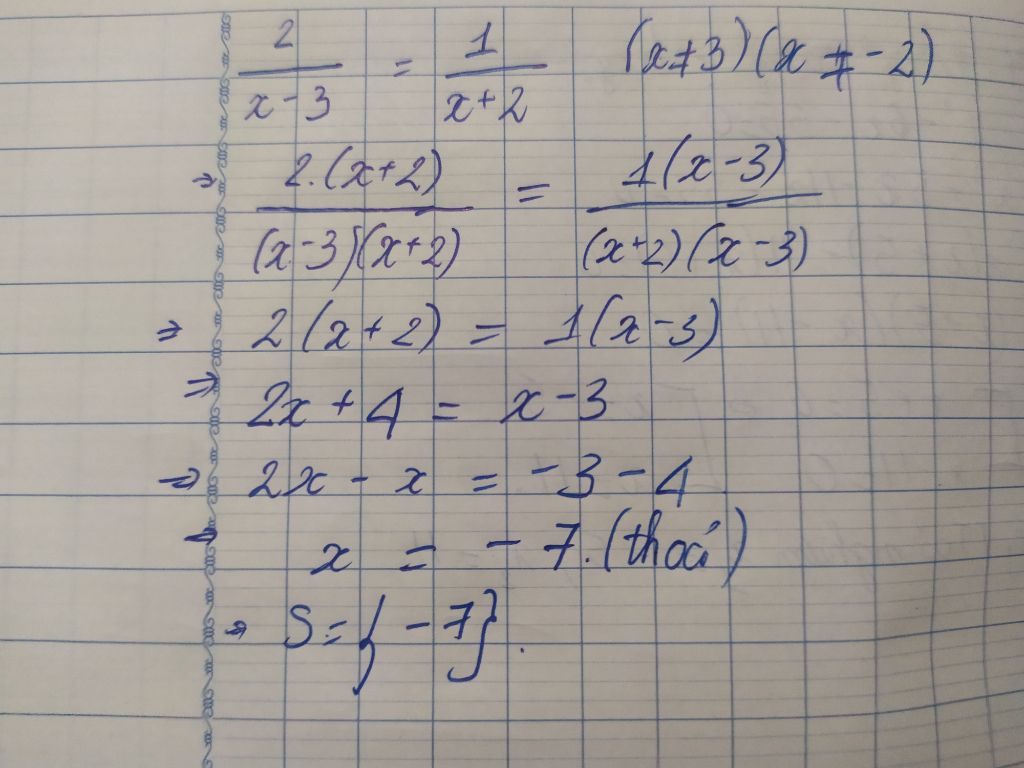 2/(x-3) = 1/(x+2) (x≠3)(x≠-2)
⇒ 2.(x+2)/(x-3)(x+2) = 1(x-3)/(x+2)(x-3)
⇒ 2(x+2) = 1(x-3)
⇒ 2x+4 = x-3
⇒ 2x - x = -3-4
⇒ x = -7.(thoả)
⇒ S={-7}.